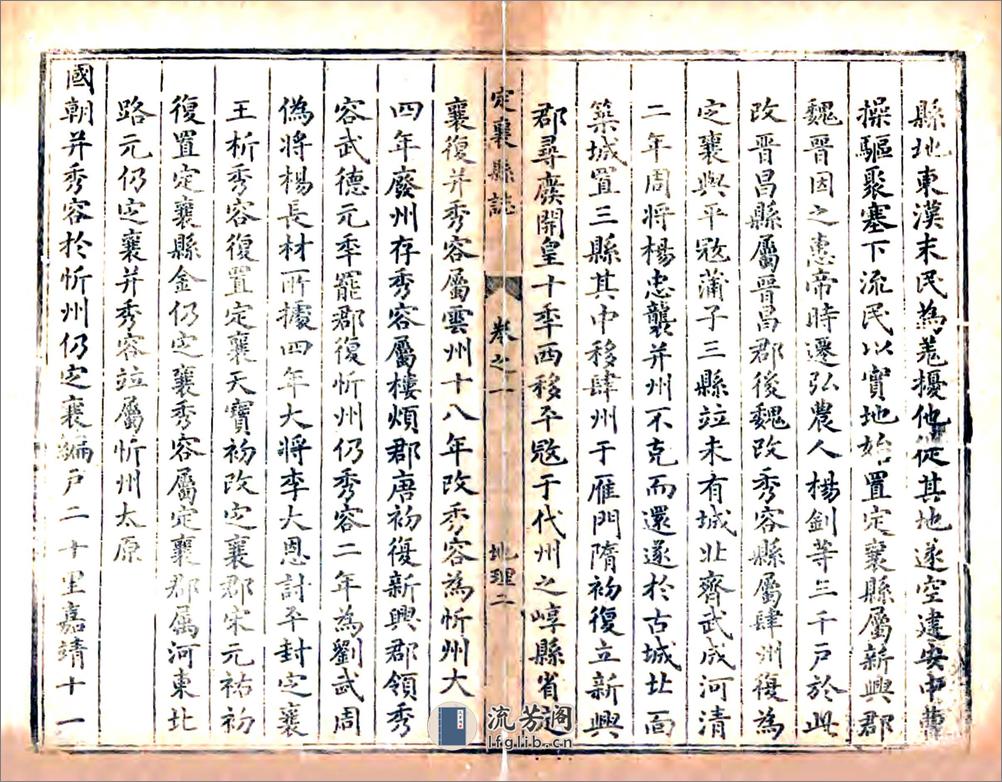 縣地東漢末民為羌擾他徙其地遂空建安中曹
操驅聚塞下流民以實地始置定襄縣屬新興郡
魏晉因之惠帝時遷弘農人楊釗等三千戸於此
改晉昌縣屬晉昌郡後魏改秀容縣屬肆州復為
定襄與平㓂蒲子三縣竝未有城北齊武成河清
二年周將楊忠襲并州不克而還遂於古城北面
築城置三縣其中移肆州于雁門隋初復立新興
郡尋廢開皇十年西移平㓂于代州之崞縣省
襄復并秀容屬雲州十八年改秀容為忻州大
四年廢州存秀容屬樓煩郡唐初復新興郡領秀
容武德元年罷郡復忻州仍秀容二年為劉武周
偽將楊長材所據四年大將李大恩討平封定襄
王析秀容復置定襄天寶初改定襄郡宋元祐初
復置定襄縣金仍定襄秀容屬定襄郡属河東北
路元仍定襄并秀容竝屬忻州太原
國朝并秀容於忻州仍定襄編戸二十里嘉靖十一
定襄縣誌
卷之一
地理二
流芳阁
lfglib.cn